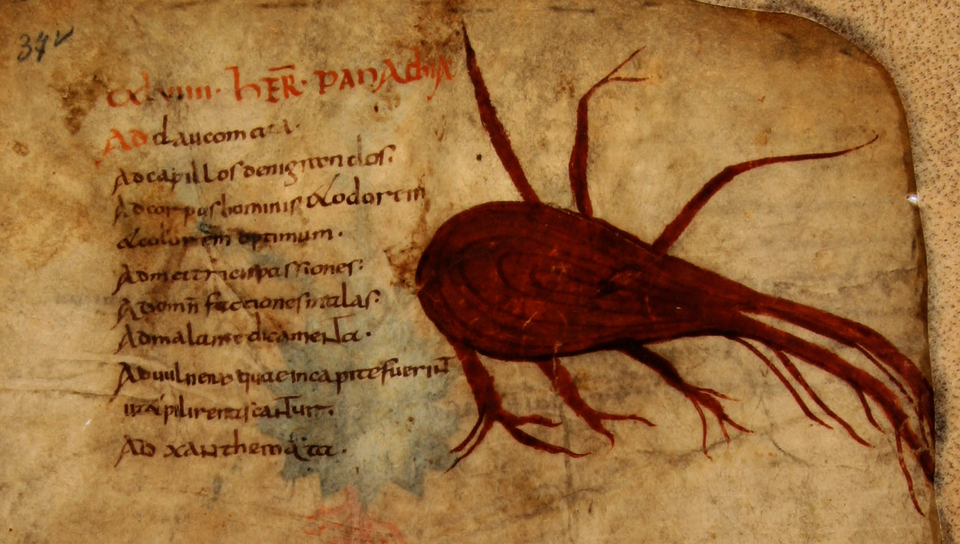 37v
HER. PANACHIA
AD claucomata.
Ad capillos denigrendos:
Ad corpus hominis & odorem
& colorem optimum.
Ad matricis passiones:
Ad omn̄ facciones malas:
Ad mala medicamenta.
Ad uulnera quae in capite fuerint
ut capili renascantur.
AD xanthemata.